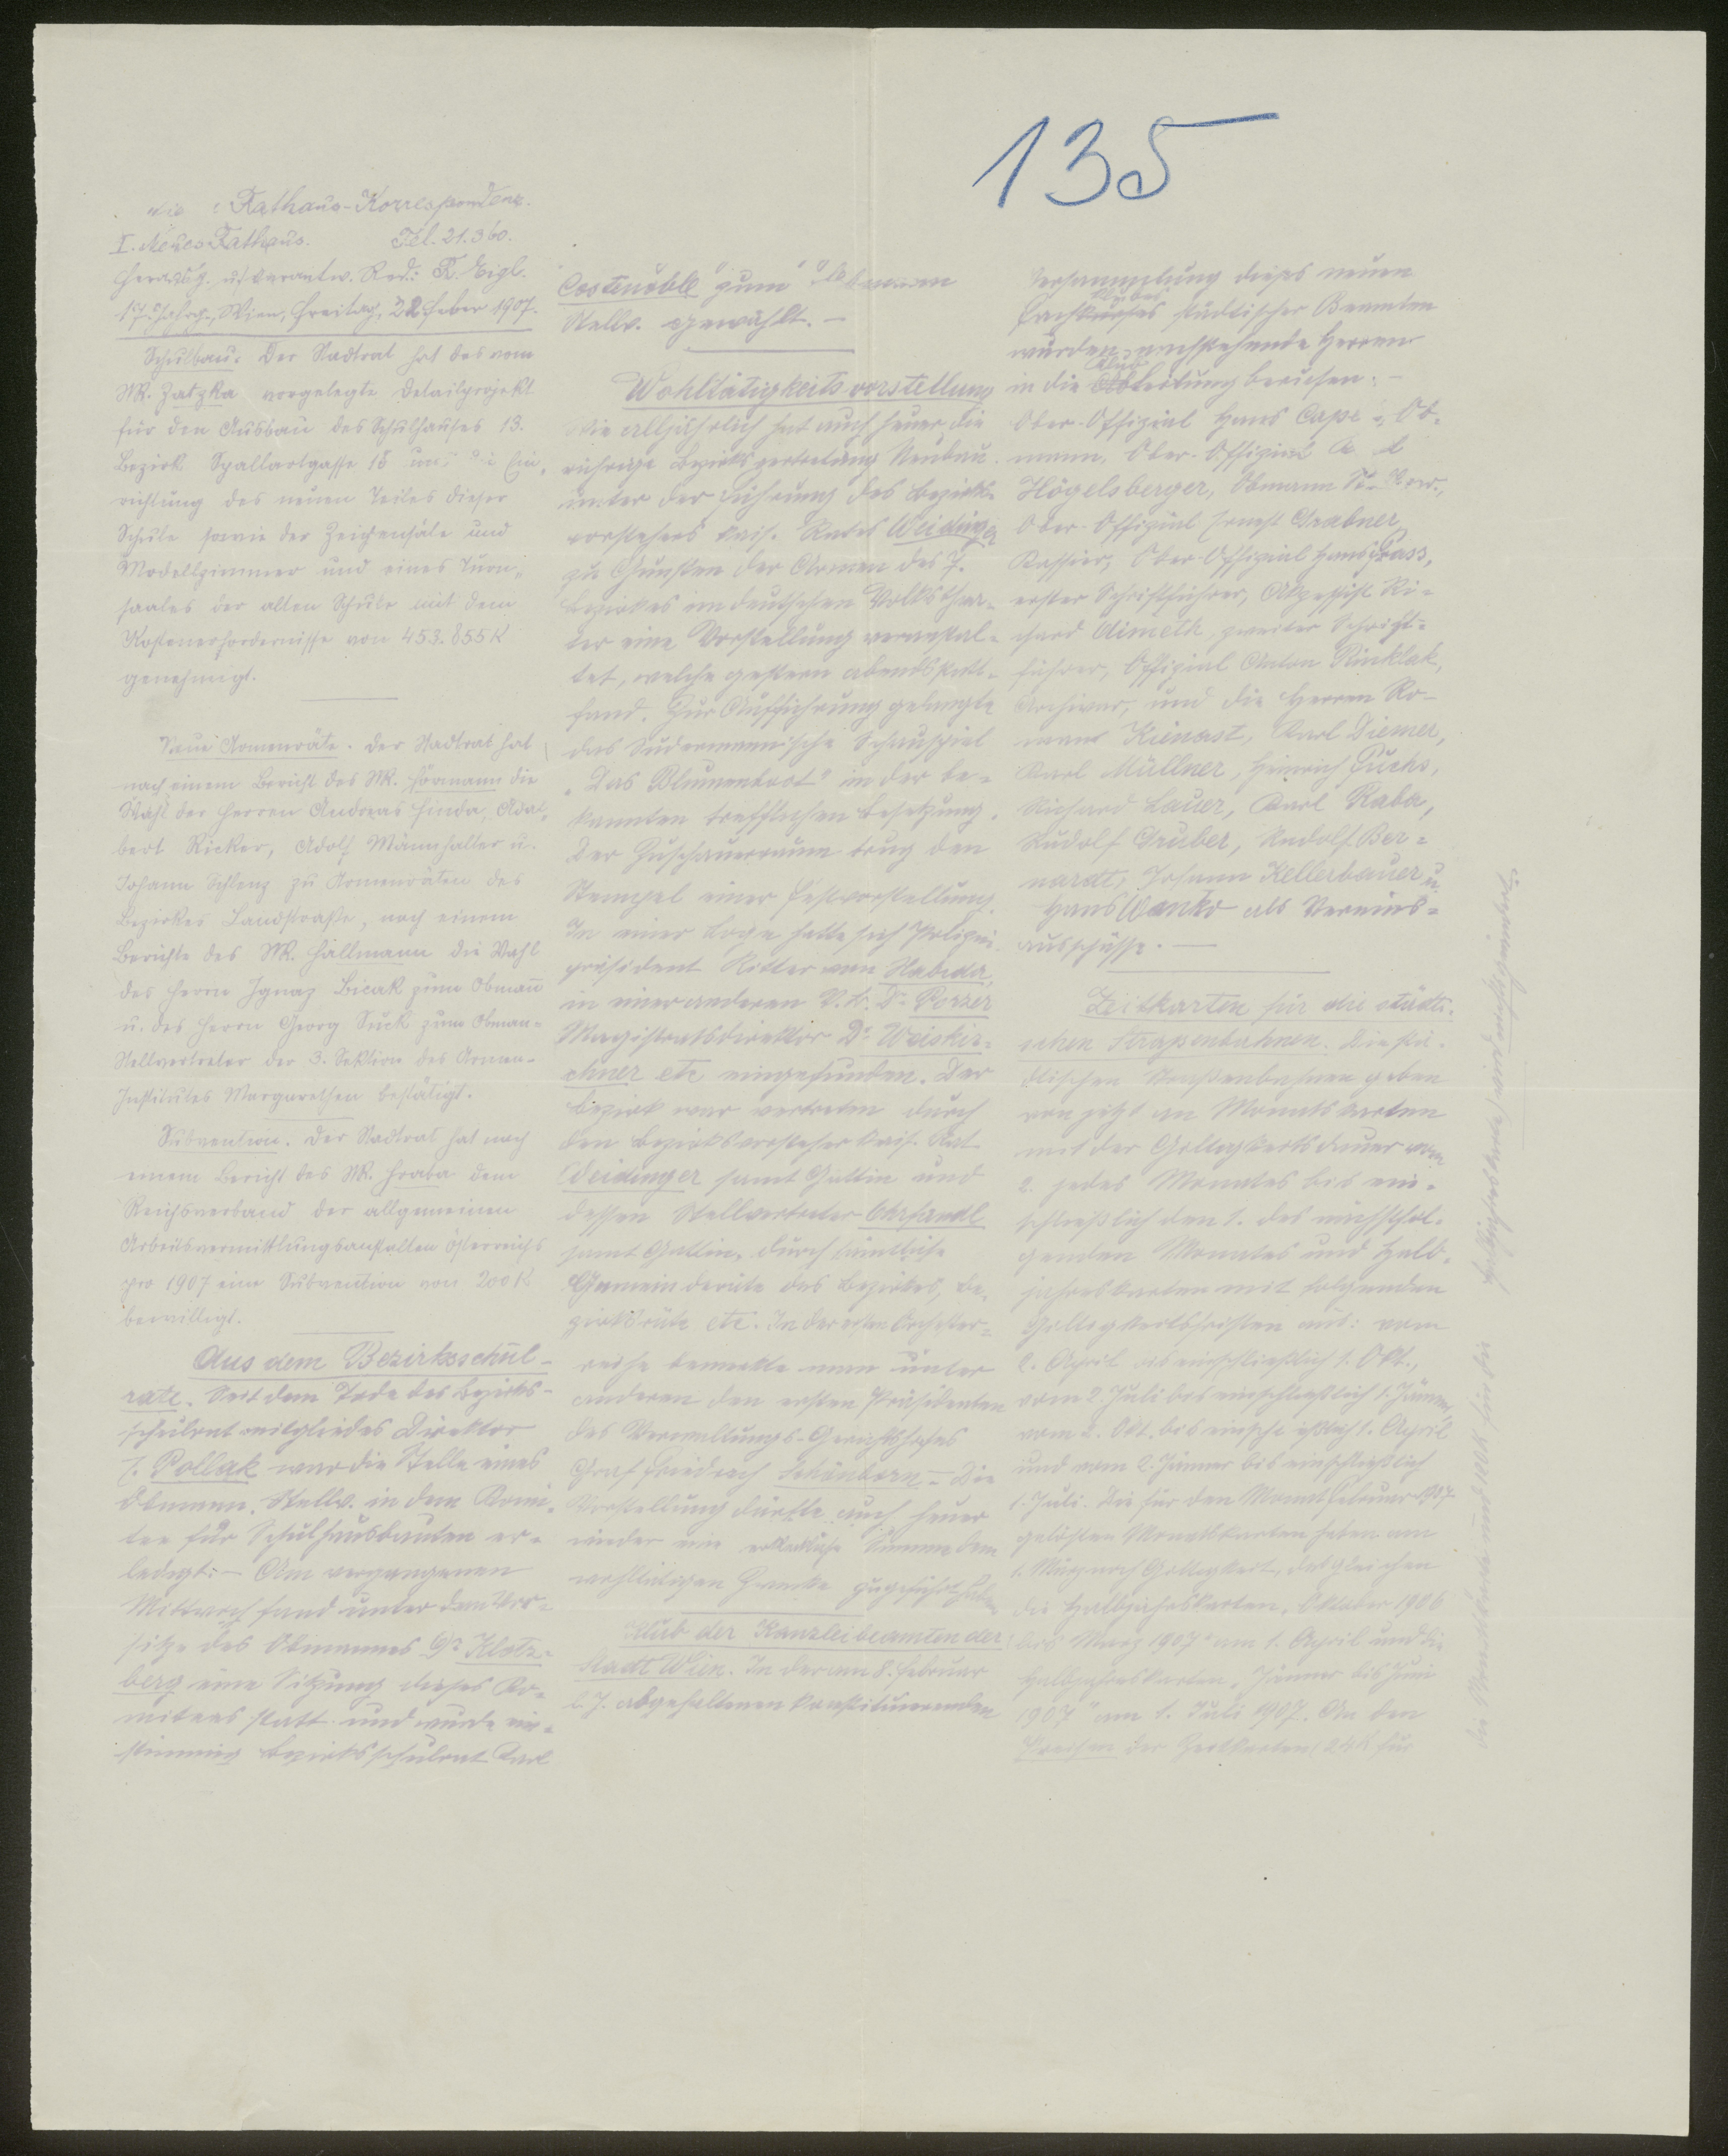 135
Rathaus-Korrespondenz.
I. Neues Rathaus. Tel. 21.360.
Herausg. u. verantw. Red.: R. Eigl.
17. Jahrg., Wien, Freitag, 22. Feber 1907.
Schulbau. Der Stadtrat hat das vom
StR. Zatzka vorgelegte Detailprojekt
für den Ausbau des Schulhauses 13.
Bezirk, Spallartgasse 18 und die Ein-
richtung des neuen Teiles dieser
Schule sowie der Zeichensäle und
Modellzimmer und eines Turn-
saales der alten Schule mit dem
Kostenerfordernisse von 453.855 K
genehmigt.
Neue Armenräte. Der Stadtrat hat
nach einem Bericht des StR. Hörmann die
Wahl der Herren Andreas Hinda, Adal-
bert Ricker, Adolf Mannhalter u.
Johann Schlenz zu Armenräten des
Bezirkes Landstraße, nach einem
Berichte des StR. Hallmann die Wahl
des Herrn Ignaz Bicak zum Obmann
u. des Herrn Georg Suck zum Obman-
Stellvertreter der 3. Sektion des Armen-
Institutes Margarethen bestätigt.
Subvention. Der Stadtrat hat nach
einem Bericht des StR. Hraba dem
Reichsverband der allgemeinen
Arbeitsvermittlungsanstalten Österreichs
pro 1907 eine Subvention von 200 K
bewilligt.
Aus dem Bezirksschul-
rate. Seit dem Tode des Bezirks-
schulratmitgliedes Direktor
J. Pollak war die Stelle eines
Obmann. Stellv. in dem Komi-
tee für Schulhausbauten er-
ledigt. - Am vergangenen
Mittwoch fand unter dem Vor-
sitze des Obmannes Dr. Klotz-
berg eine Sitzung dieses Ko-
mitees statt und wurde ein-
stimmig Bezirksschulrat Karl
Costenoble zum Obmann
Stellv. gewählt. -
Wohltätigkeitsvorstellung
Wie alljährlich hat auch heuer die
rührige Bezirksvertretung Neubau
unter der Führung des Bezirks-
vorstehers kais. Rates Weidinger
zu Gunsten der Armen des 7.
Bezirkes im deutschen Volksthea-
ter eine Vorstellung veranstal-
tet, welche gestern abends statt-
fand. Zur Aufführung gelangte
das Sudermannische Schauspiel
"Das Blumenboot" in der be-
kannten trefflichen Besetzung.
Der Zuschauerraum trug den
Stempel einer Festvorstellung.
In einer Loge hatte sich Polizei-
präsident Ritter von Habrda,
in einer anderen V. B. Dr. Porzer
Magistratsdirektor Dr. Weiskir-
chner etc eingefunden. Der
Bezirk war vertreten durch
den Bezirksvorsteher kais. Rat
Weidinger samt Gattin und
dessen Stellvertreter Ohrfandl
samt Gattin, durch sämtliche
Gemeinderäte des Bezirkes, Be-
zirksräte etc. In der ersten Orchester-
reihe bemerkte man unter
anderen den ersten Präsidenten
des Verwaltungs-Gerichtshofes
Graf Friedrich Schönborn. - Die
Vorstellung dürfte auch heuer
wieder eine erkleckliche Summe dem
wohltätigen Zwecke zugeführt haben
Klub der Kanzleibeamten der
Stadt Wien. In der am 8. Februar
l. J. abgehaltenen konstituierenden
Versammlung dieses neuen
Klubes
Fachkurses städtischer Beamten
wurden nachstehende Herren
in die Klubleitung berufen: -
Ober-Offizial Hans Cape, Ob-
mann, Ober-Offizial
Högelsberger, Obmann St.
Ober-Offizial Ernest Grabner,
Kassier, Ober-Offizial Hans Prass,
erster Schriftführer, Akzessist Ri-
chard Aimeth, zweiter Schrift-
führer, Offizial Anton Rinklak,
Archivar, und die Herren Ro-
man Kienast, Karl Diemer,
Karl Müllner, Heinrich Fuchs,
Richard Lauer, Karl Raba,
Rudolf Gruber, Rudolf Ber-
nardt, Johann Kellerbauer u.
Hans Wanko als Vereins-
ausschüsse. -
Zeitkarten für die städti-
schen Strassenbahnen. Die stä-
dtischen Straßenbahnen geben
von jetzt an Monatskarten
mit der Giltigkeitsdauer vom
2. jedes Monates bis ein-
schließlich den 1. des nächstfol-
genden Monates und Halb-
jahreskarten mit folgenden
Giltigkeitsfristen aus: vom
2. April bis einschließlich 1. Okt.,
vom 2. Juli bis einschließlich 1. Jänner,
vom 2. Okt. bis einschließlich 1. April
und vom 2. Jänner bis einschließlich
1. Juli. Die für den Monat Februar 1907
gelösten Monatskarten haben am
1. März noch Giltigkeit, desgleichen
die Halbjahrskarten "Oktober 1906
bis März 1907" am 1. April und die
Halbjahreskarten "Jänner bis Juni
1907" am 1. Juli 1907. An den
Preisen der Zeitkarten (24 K für
die Monatskarte und 120 K für die
Halbjahreskarte) wird nichts geändert.